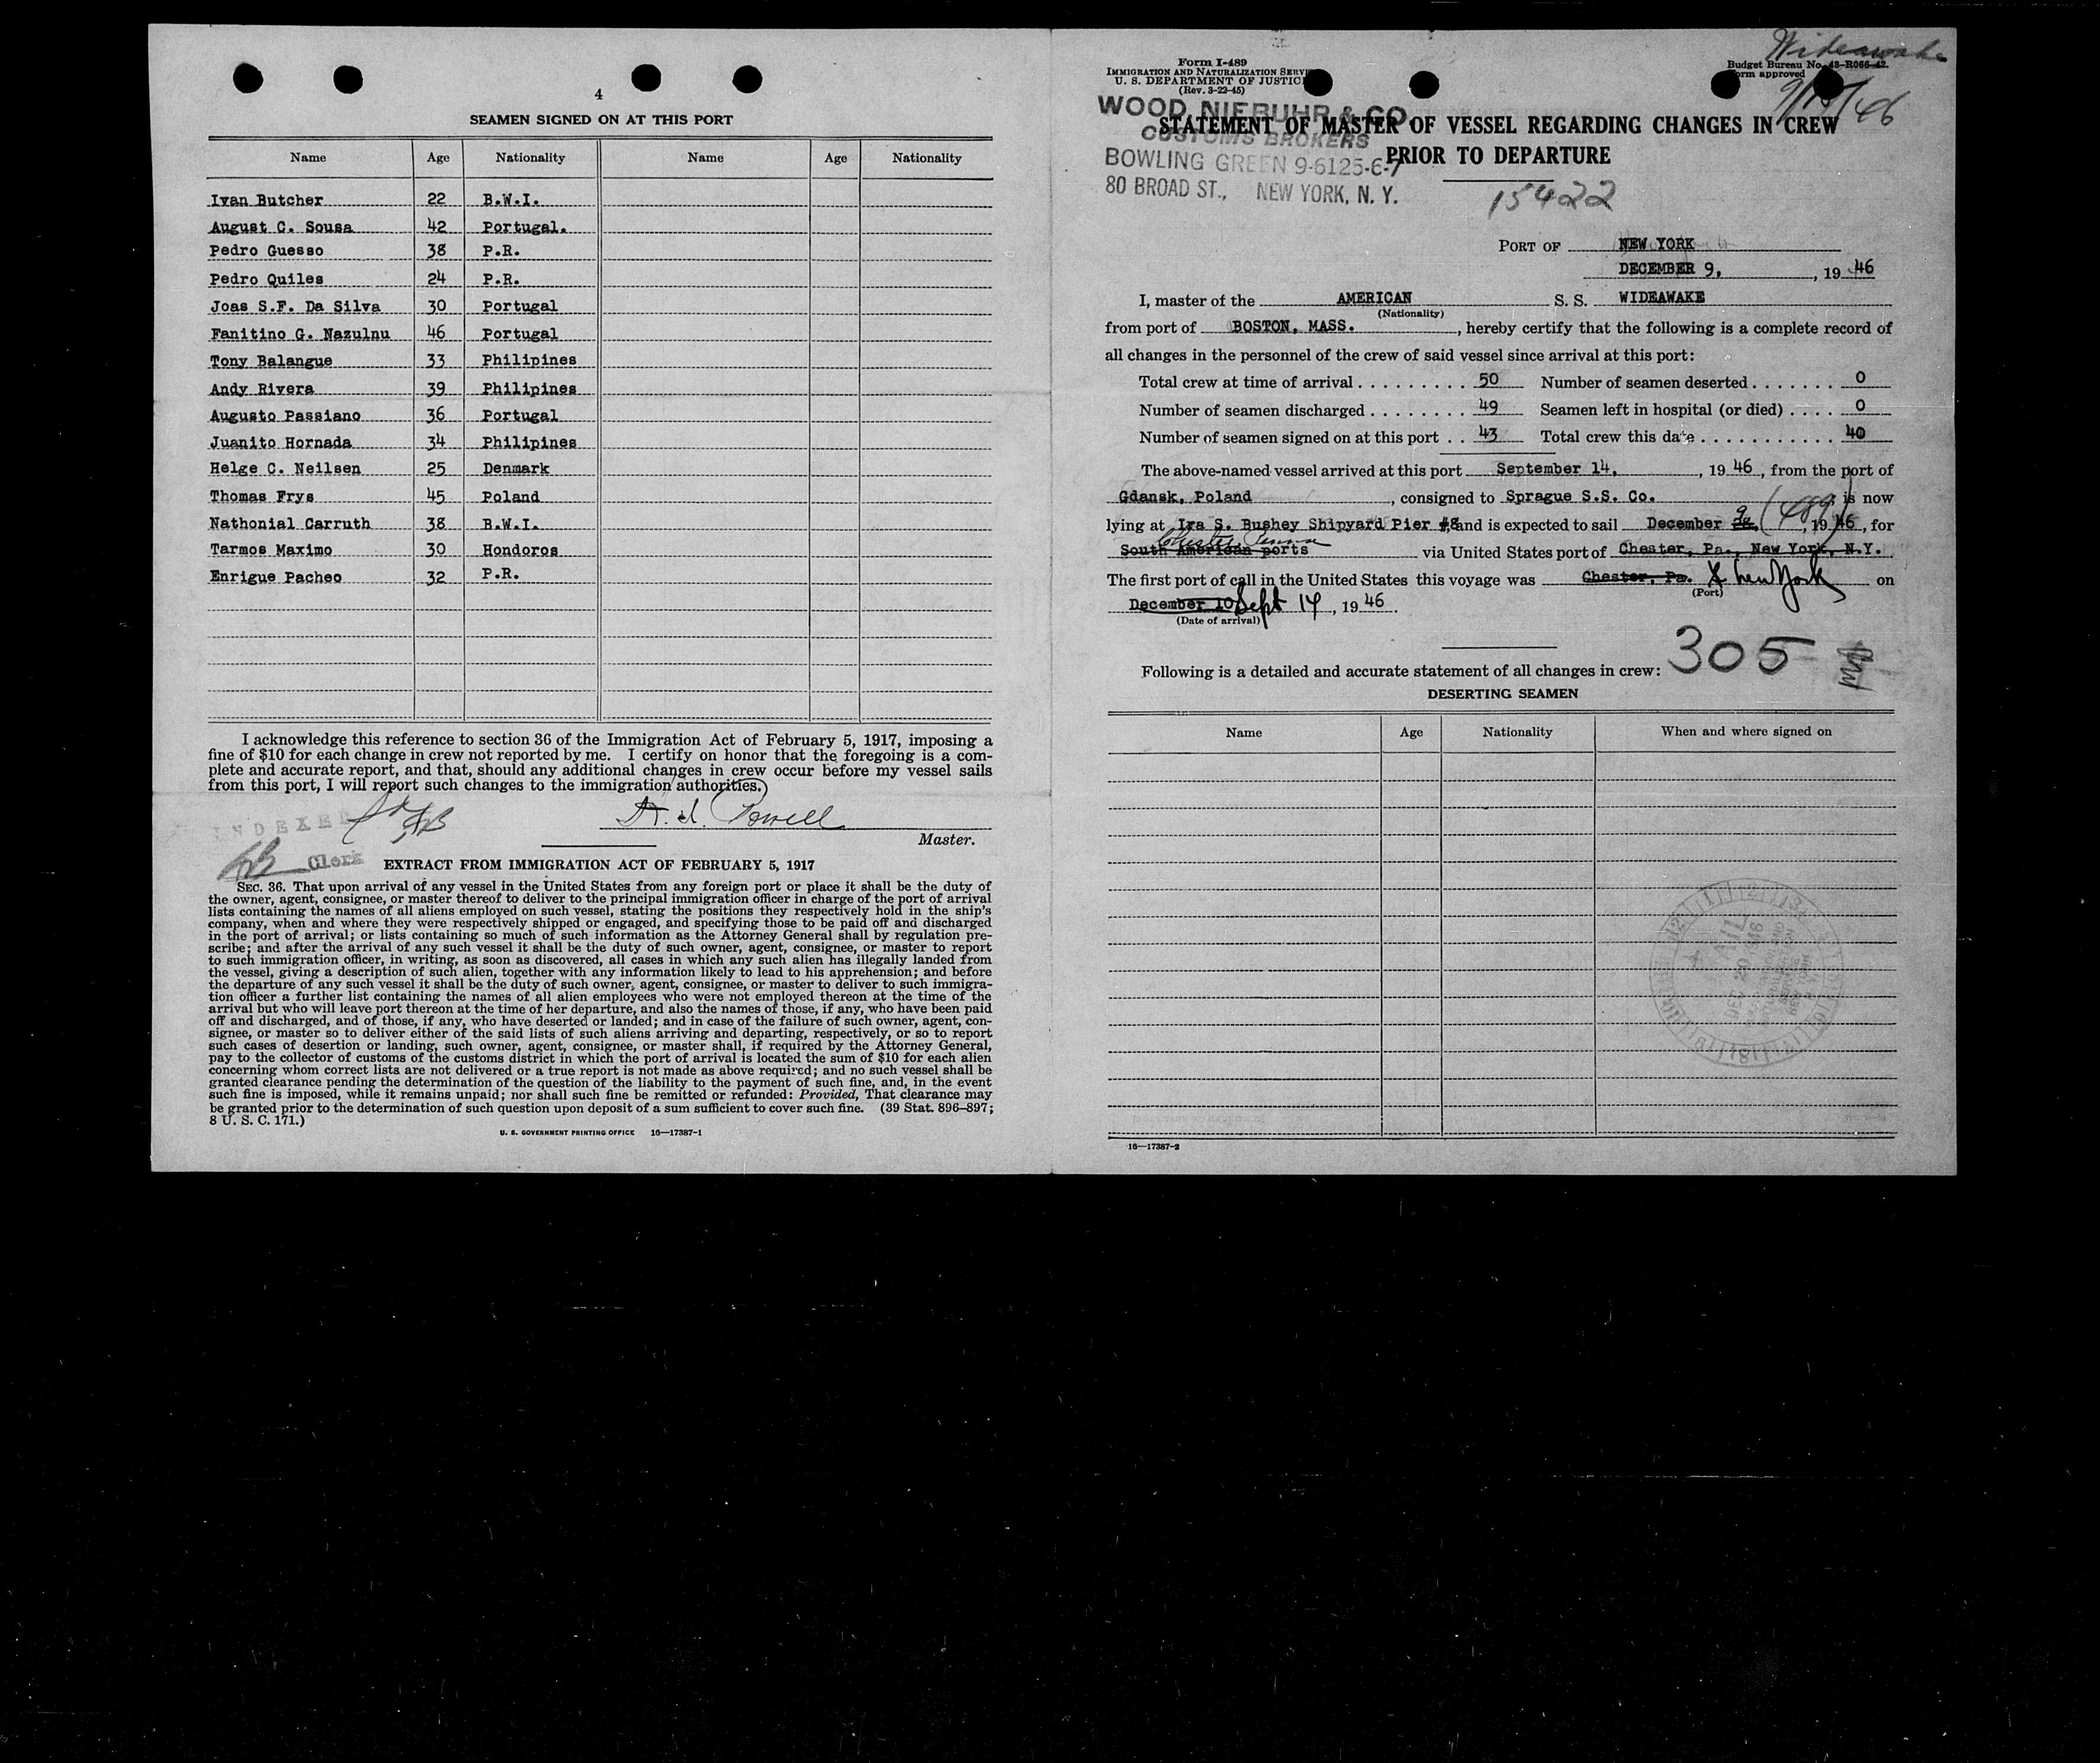 4
SEAMEN SIGNED ON AT THIS PORT
Name Age Nationality Name Age Nationality
Ivan Butcher 22 B.W.I.
August C. Sousa 42 Portugal.
Pedro Guesso 38 P.R.
Pedro Quiles 24 P.R.
Joas S.F. Da Silva 30 Portugal
Fanitino G. Nazulnu 46 Portugal
Tony Balangue 33 Philipines
Andy Rivera 39 Philipines
Augusto Passiano 36 Portugal
Juanito Hornada 34 Philipines
Helge C. Neilsen 25 Denmark
Thomas Frys 45 Poland
Nathonial Carruth 38 B.W.I.
Tarmos Maximo 30 Hondoros
Enrigue Pacheo 32 P.R.
I acknowledge this reference to section 36 of the Immigration Act of February 5, 1917, imposing a
fine of $10 for each change in crew not reported by me. I certify on honor that the foregoing is a com-
plete and accurate report, and that, should any additional changes in crew occur before my vessel sails
from this port, I will report such changes to the immigration authorities.
INDEXED
Powell
Master.
Clerk
EXTRACT FROM IMMIGRATION ACT OF FEBRUARY 5, 1917
SEC. 36. That upon arrival of any vessel in the United States from any foreign port or place it shall be the duty of
the owner, agent, consignee, or master thereof to deliver to the principal immigration officer in charge of the port of arrival
lists containing the names of all aliens employed on such vessel, stating the positions they respectively hold in the ship's
company, when and where they were respectively shipped or engaged, and specifying those to be paid off and discharged
in the port of arrival; or lists containing so much of such information as the Attorney General shall by regulation pre-
scribe; and after the arrival of any such vessel it shall be the duty of such owner, agent, consignee, or master to report
to such immigration officer, in writing, as soon as discovered, all cases in which any such alien has illegally landed from
the vessel, giving a description of such alien, together with any information likely to lead to his apprehension; and before
the departure of any such vessel it shall be the duty of such owner, agent, consignee, or master to deliver to such immigra-
tion officer a further list containing the names of all alien employees who were not employed thereon at the time of the
arrival but who will leave port thereon at the time of her departure, and also the names of those, if any, who have been paid
off and discharged, and of those, if any, who have deserted or landed; and in case of the failure of such owner, agent, con-
signee, or master so to deliver either of the said lists of such aliens arriving and departing, respectively, or so to report
such cases of desertion or landing, such owner, agent, consignee, or master shall, if required by the Attorney General,
pay to the collector of customs of the customs district in which the port of arrival is located the sum of $10 for each alien
concerning whom correct lists are not delivered or a true report is not made as above required; and no such vessel shall be
granted clearance pending the determination of the question of the liability to the payment of such fine, and, in the event
such fine is imposed, while it remains unpaid; nor shall such fine be remitted or refunded: Provided, That clearance may
be granted prior to the determination of such question upon deposit of a sum sufficient to cover such fine. (39 Stat. 896–897;
8 U. S. C. 171.)
U. S. GOVERNMENT PRINTING OFFICE 16—17387-1
Wideawake
Form I-489
IMMIGRATION AND NATURALIZATION SERVI
U. S. DEPARTMENT OF JUSTIC
(Rev. 3-22-45)
Budget Bureau No. 43-R066-42.
orm approved
WOOD, NIEBUHR & CO.
CUSTOMS BROKERS
BOWLING GREEN 9-6125-6-7
80 BROAD ST., NEW YORK, N. Y.
STATEMENT OF MASTER OF VESSEL REGARDING CHANGES IN CREW
PRIOR TO DEPARTURE
15422
PORT OF NEW YORK
DECEMBER 9, , 19 46
I, master of the AMERICAN S. S. WIDEAWAKE
(Nationality)
from port of BOSTON, MASS. , hereby certify that the following is a complete record of
all changes in the personnel of the crew of said vessel since arrival at this port:
Total crew at time of arrival . . . . . . . . . 50 Number of seamen deserted . . . . . . . 0
Number of seamen discharged . . . . . . . . 49 Seamen left in hospital (or died) . . . . 0
Number of seamen signed on at this port . . 43 Total crew this date . . . . . . . . . . . 40
The above-named vessel arrived at this port September 14, , 19 46 , from the port of
Gdansk, Poland , consigned to Sprague S.S. Co. , is now
lying at Ira S. Bushey Shipyard Pier #8, and is expected to sail December 9 (489) , 19 46 , for
Chester Penna
South American ports via United States port of Chester, Pa., New York, N.Y.
The first port of call in the United States this voyage was Chester, Pa. New York on
(Port)
December 10 Sept 14 , 19 46 .
(Date of arrival)
305
Following is a detailed and accurate statement of all changes in crew:
DESERTING SEAMEN
Name Age Nationality When and where signed on
16—17387-2